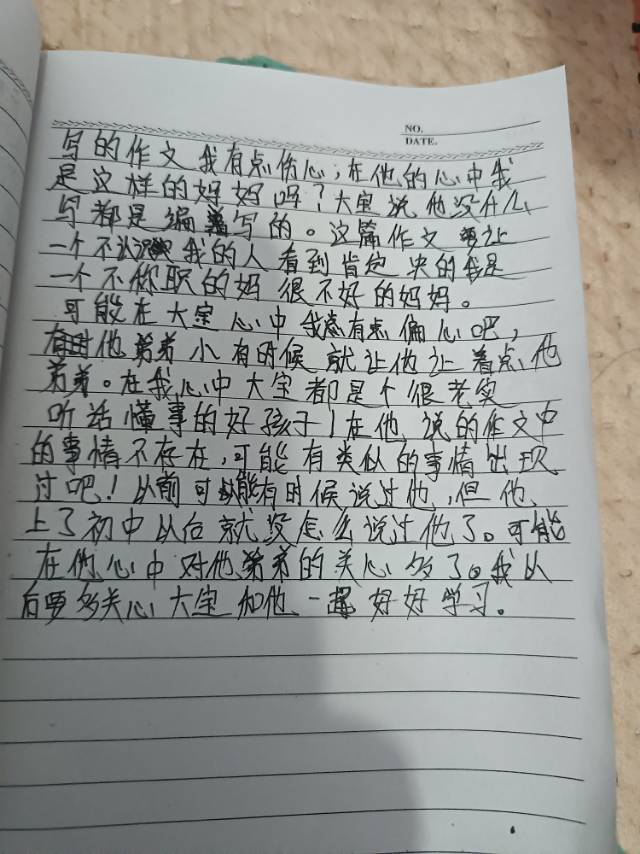 NO.
DATE.
写的作文我有点伤心,在他的心中我
是这样的妈妈吗?大宝说他没什么
写都是编着写的。这篇作文要让
一个不认识我的人看到肯定决的我是
一个不称职的妈很不好的妈妈。
可能在大宝心中我总有点偏心吧,
有时他弟弟小有时候就让他让着点他
弟弟。在我心中大宝都是个很老实
听话懂事的好孩子!在他说的作文中
的事情不存在,可能有类似的事情出现
过吧!以前可能有时候说过他,但他
上了初中以后就没怎么说过他了。可能
在他心中对他弟弟的关心多了。我以
后要多关心大宝和他一起好好学习。